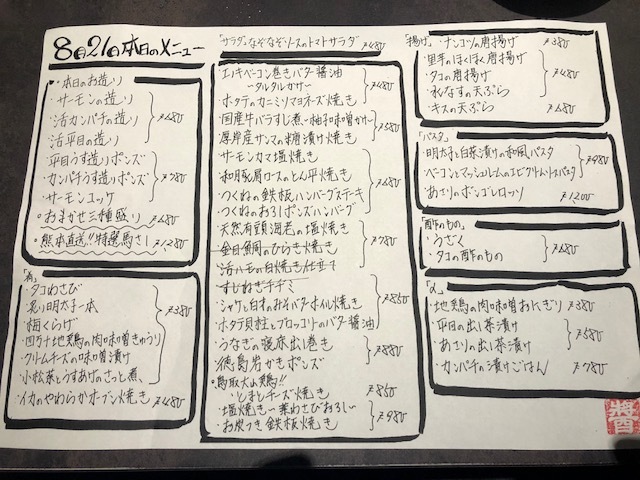 8月21日本日のメニュー
・本日のお造り
・サーモンの造り
・活カンパチの造り
・活平目の造り
・平目うす造りポンズ
・カンパチうす造りポンズ
・サーモンユッケ
・おまかせ三種盛り ¥1,680
・熊本直送!!特選馬さし ¥1,280
・タコわさび
・炙り明太子一本
・梅くらげ
・四万十地鶏の肉味噌きゅうり
・クリームチーズの味噌漬け
・小松菜とうすあげのさっと煮
¥380
・イカのやわらかオーブン焼き ¥480
「サラダ」なぞなぞソースのトマトサラダ ¥480
・エノキベーコン巻きバター醤油
～タルタルがけ～
・ホタテのカニミソマヨネーズ焼き
¥480
・国産牛バラすじ煮～柚和味噌がけ～
・厚岸産サンマの糠漬け焼き
¥580
・サーモンカマ塩焼き
・和豚肩ロースのとん平焼き
・つくねの鉄板ハンバーグステーキ
・つくねのおろしポンズハンバーグ
¥680
・天然有頭海老の塩焼き
・金目鯛のひらき焼き
・活ハモの白焼き仕立て
¥780
・すじねぎチヂミ
・シャケと白子のみそバターホイル焼き
・ホタテ貝柱とブロッコリーのバター醤油
¥850
・うなぎの寝床出し巻き
・徳島岩がきポンズ
¥880
・鳥取大山鶏!!
・とまとチーズ焼き ¥850
・塩焼き～葉わさびおろし～
・お炭つき鉄板焼き
¥980
「揚げ」・ナンコツの唐揚げ ¥380
・里芋のほくほく唐揚げ
・タコの唐揚げ
・水なすの天ぷら
¥480
・キスの天ぷら ¥680
「パスタ」
・明太子と白菜漬けの和風パスタ
¥980
・あさりのボンゴレロッソ ¥1,200
「酢のもの」
・うざく
・タコの酢のもの
¥680
・地鶏の肉味噌おにぎり ¥380
・平目の出し茶漬け
・あさりの出し茶漬け
¥580
・カンパチの漬けごはん ¥780